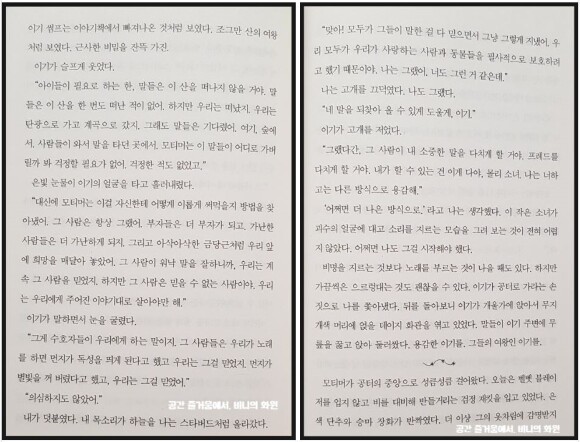 이기 썸프는 이야기책에서 빠져나온 것처럼 보였다. 조그만 산의 여왕
처럼 보였다. 근사한 비밀을 잔뜩 가진.
이기가 슬프게 웃었다.
“아이들이 필요로 하는 한, 말들은 이 산을 떠나지 않을 거야. 말
들은 이 산을 한 번도 떠난 적이 없어. 하지만 우리는 떠났지. 우리는
탄광으로 가고 계곡으로 갔지. 그래도 말들은 기다렸어. 여기, 숲에
서. 사람들이 와서 말을 타던 곳에서. 모티머는 이 말들이 어디로 가버
릴까 봐 걱정할 필요가 없어. 걱정한 적도 없었고.”
은빛 눈물이 이기의 얼굴을 타고 흘러내렸다.
“대신에 모티머는 이걸 자신한테 어떻게 이롭게 써먹을지 방법을 찾
아냈어. 그 사람은 항상 그랬어. 부자들은 더 부자가 되고, 가난한
사람들은 더 가난하게 되지. 그리고 아삭아삭한 금당근처럼 우리 앞
에 희망을 매달아 놓았어. 그 사람이 워낙 말을 잘하니까, 우리는 계
속 그 사람을 믿었지. 하지만 그 사람은 믿을 수 없는 사람이야. 우리
는 우리에게 주어진 이야기대로 살아야만 해.”
이기가 말하면서 눈을 굴렸다.
“그게 수호자들이 우리에게 하는 말이지. 그 사람들은 우리가 노래
를 하면 먼지가 독성을 띄게 된다고 했고 우리는 그걸 믿었지. 먼지가
별빛을 꺼 버렸다고 했고, 우리는 그걸 믿었어.”
“의심하지도 않았어.”
내가 덧붙였다. 내 목소리가 하늘을 나는 스타버드처럼 올라갔다.
공간 즐거움에서, 비니의 화원
“맞아! 모두가 그들이 말한 걸 다 믿으면서 그냥 그렇게 지냈어. 우
리 모두가 우리가 사랑하는 사람과 동물들을 필사적으로 보호하려
고 했기 때문이야. 나는 그랬어, 너도 그런 거 같은데.”
나는 고개를 끄덕였다. 나도 그랬다.
“네 말을 되찾아 올 수 있게 도울게, 이기.”
이기가 고개를 저었다.
“그랬다간, 그 사람이 내 소중한 말을 다치게 할 거야. 프레드를
다치게 할 거야. 내가 할 수 있는 건 이게 다야, 물리 소녀. 나는 너하
고는 다른 방식으로 용감해.”
‘어쩌면 더 나은 방식으로.’라고 나는 생각했다. 이 작은 소녀가
괴수의 얼굴에 대고 소리를 지르는 모습을 그려 보는 것이 전혀 어렵
지 않았다. 어쩌면 나도 그걸 시작해야 했다.
비명을 지르는 것보다 노래를 부르는 것이 나을 때도 있다. 하지만
가끔씩은 으르렁대는 것도 괜찮을 수 있다. 이기가 공터로 가라는 손
짓으로 나를 쫓아냈다. 뒤를 돌아보니 이기가 개울가에 앉아서 무지
개색 머리에 얹을 데이지 화관을 엮고 있었다. 말들이 이기 주변에 무
릎을 꿇고 앉아 둘러쌌다. 용감한 이기를. 그들의 여왕인 이기를.
모티머가 공터의 중앙으로 성큼성큼 걸어왔다. 오늘은 벨벳 블레이
저를 입지 않고 비를 대비해 만들기라는 검정 재킷을 입고 있었다. 은
색 단추와 승마 장화가 반짝였다. 더 이상 그의 옷차림에 감명받지
공간 즐거움에서, 비니의 화원